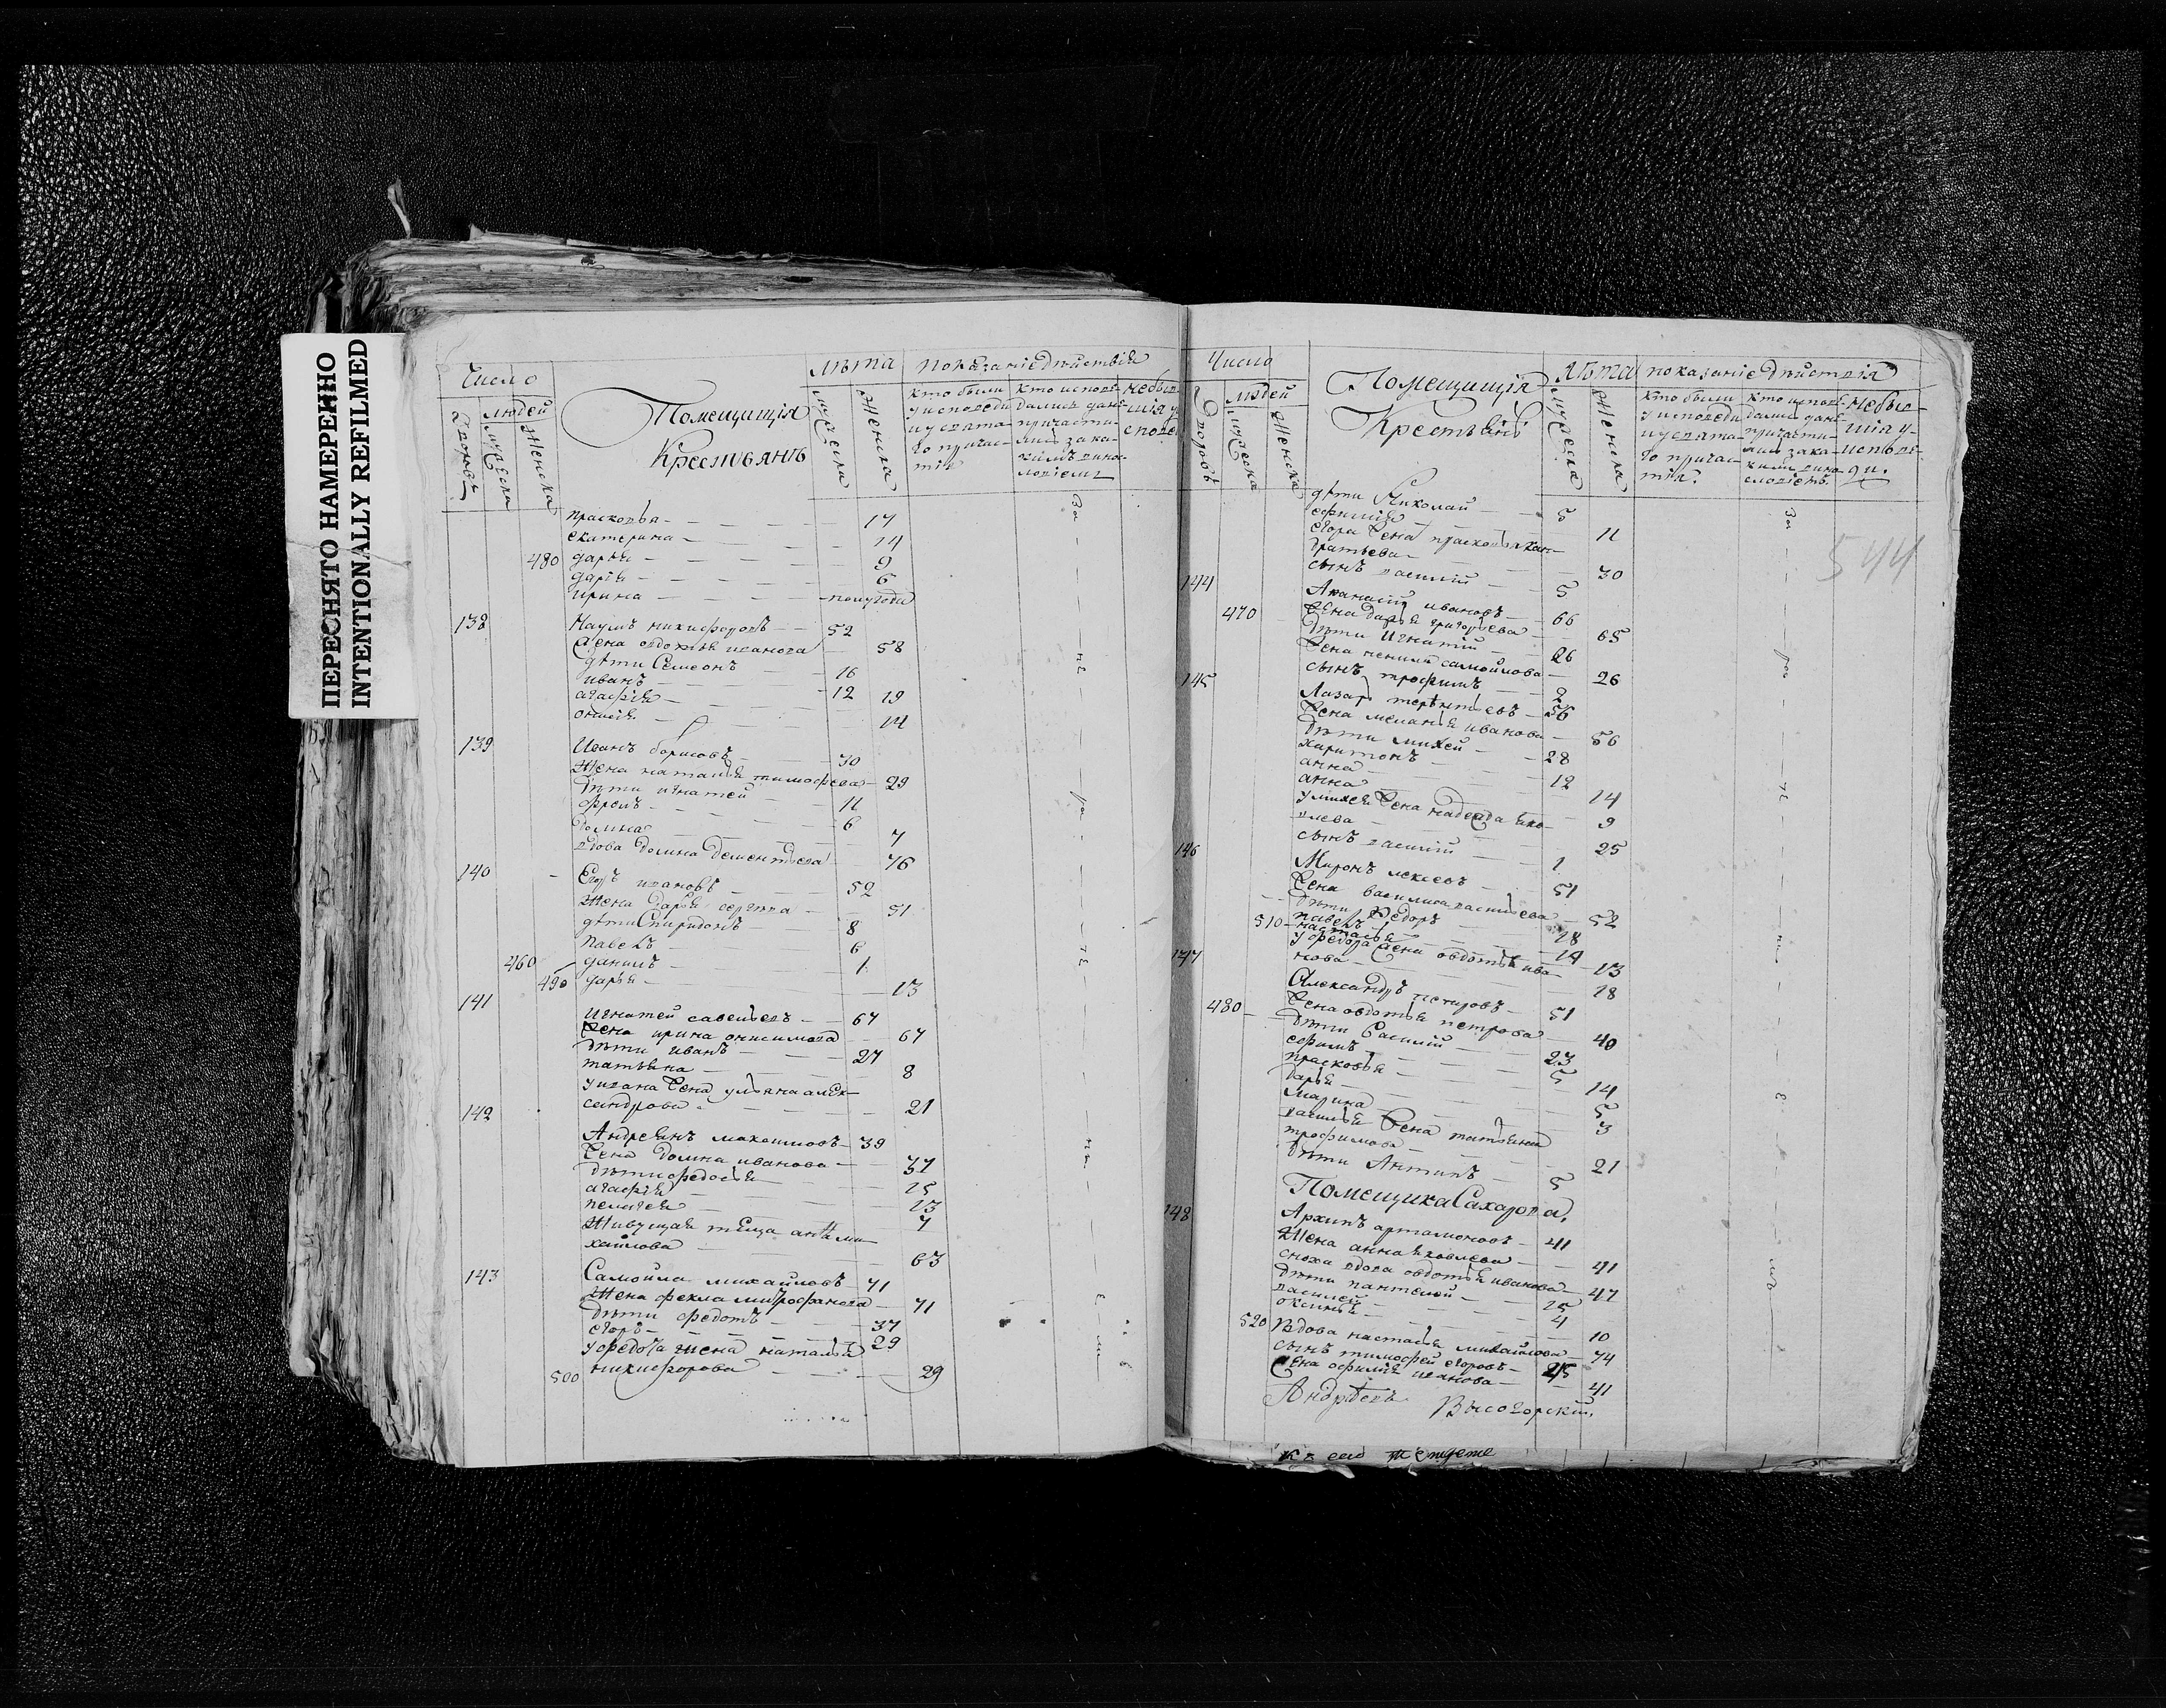 ПЕРЕСНЯТО НАМЕРЕННО
INTENTIONALLY REFILMED
Число
людей
Дворовъ
мужеска
Женска
Помещицкія
Крестьянъ
лѣта
мужеска
Женска
показаніе дѣйствія
кто были
у исповеди
и у свята-
го причас-
тія
кто испове-
дались да не
причасти-
лись за ка-
кимъ вино-
словіемъ
небыв-
шія у
испове
прасковья - 17
екатерина - 14
480 дарья - 9
дарія - 6
ирина - полугода
138 Наумъ никифоровъ - 52
жена овдотья иванова 58
дѣти Семеонъ 16
иванъ - 12
агафія - 19
14
139 Иванъ борисовъ - 30
Жена наталія тимофеева - 29
Дѣти игнатей - 11
фролъ - 6
Домна 7
вдова Домна Дементьева 76
140 Егоръ ивановъ - 52
Жена Дарья сергеева - 51
дѣти Спиридонъ - 8
павелъ 6
460 данилъ - 1
490 дарья - 13
141 Игнатей савельевъ - 67
жена ирина онисимова 67
Дѣти иванъ - 27
татьяна - 8
у ивана жена ульяна алек-
сандрова - 21
142 Андреянъ максимовъ - 39
жена Домна иванова - 37
Дѣти федосья - 15
агафія - 13
пелагея - 7
Живущая теща анна ми-
хайлова - 63
143 Самойла михайловъ - 71
Жена фекла митрофанова 71
Дѣти федотъ - 37
егоръ - 29
у федота жена наталья
500 никифорова - 29
Число
людей
Дворовъ
мужеска
Женска
Помещицкія
Крестьянъ
лѣта
мужеска
Женска
показаніе дѣйствія
кто были
у исповеди
и у свята-
го причас-
тія
кто испове-
дались да не
причасти-
лись за ка-
кимъ вино-
словіемъ
небыв-
шія у
исповѣ-
ди.
544
дѣти Николай - 5
ефимія - 11
егора жена прасковья кон-
дратьева - 30
сынъ василій - 5
144 Афанасій ивановъ - 66
470 жена дарья григорьева - 65
Дѣти Игнатій - 26
Жена самойлова - 26
сынъ трофимъ - 2
145 Лазарь терентьевъ - 56
жена меланья иванова - 56
Дѣти михей - 28
харитонъ - 12
анна - 14
анна - 9
у михея жена надежда яко-
влева - 25
сынъ василій - 1
146 Миронъ алексеевъ - 51
жена василиса васильева - 52
Дѣти Федоръ - 18
павелъ - 14
510 настасья - 13
у федора жена овдотья ива-
нова - 18
147 Александръ петровъ - 51
480 жена овдотья петрова 40
Дѣти Василій - 23
ефимъ - 5
прасковья - 14
дарья - 5
Марина - 3
василья жена татьяна
трофимова - 21
Дѣти Антипъ - 5
Помещика Сахарова,
148 Архипъ артамоновъ - 41
Жена анна яковлева - 41
сноха вдова овдотья иванова - 47
Дѣти пантелей - 15
василей - 4
оксинья - 10
520 Вдова настасья михайлова - 74
сынъ тимофей егоровъ - 45
жена ефимія иванова - 41
Андреевъ Высогорскій,